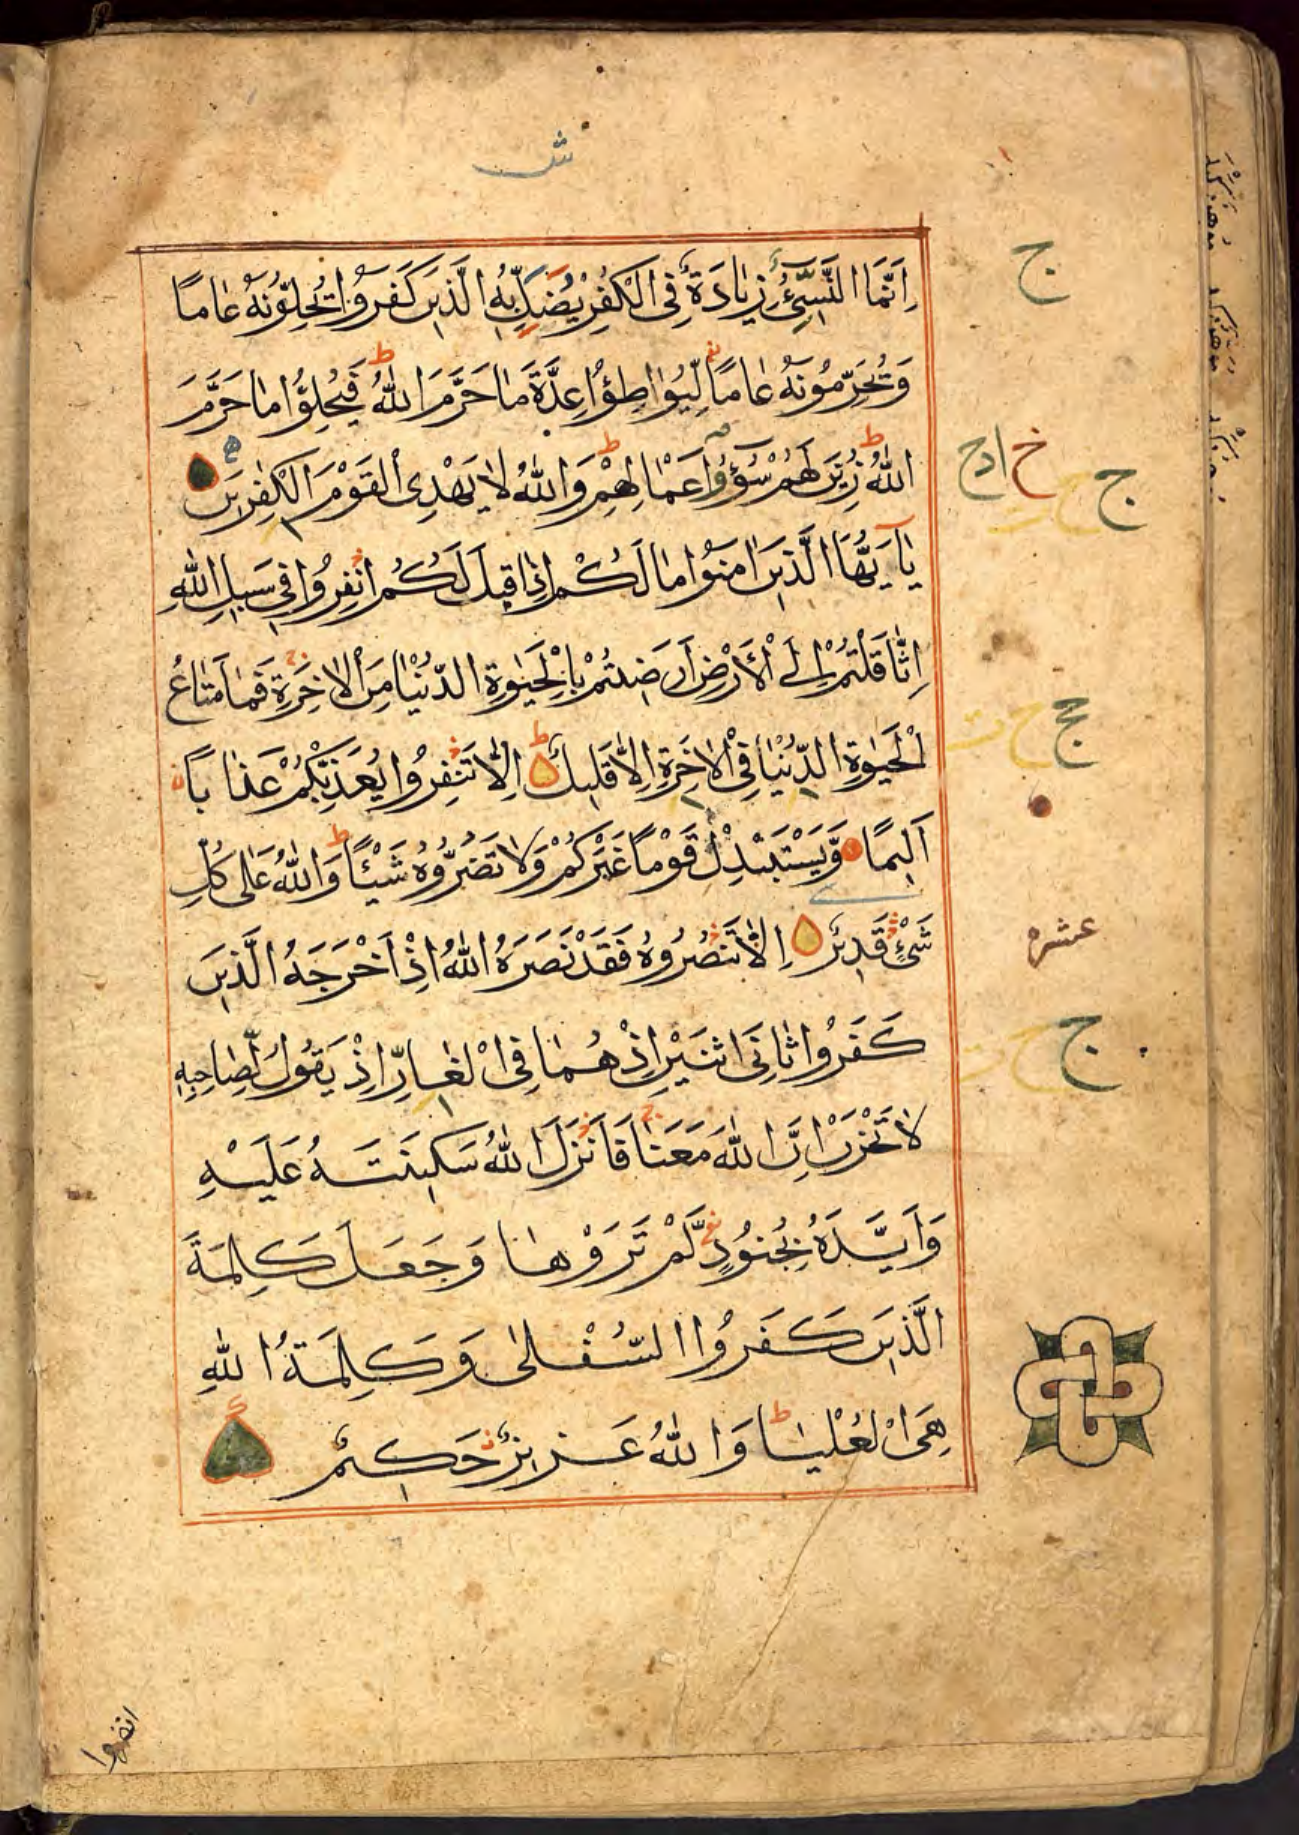 ش
اِنَّمَا النَّسِيُّ زِيَادَةٌ فِى الْكُفْرِ يُضَلُّ بِهِ الَّذِينَ كَفَرُوا يُحِلُّونَهُ عَامًا
وَيُحَرِّمُونَهُ عَامًا لِّيُوَاطِؤُا عِدَّةَ مَا حَرَّمَ اللّٰهُ فَيُحِلُّوا مَا حَرَّمَ
اللّٰهُ زُيِّنَ لَهُمْ سُوٓءُ اَعْمَالِهِمْ وَاللّٰهُ لَا يَهْدِى الْقَوْمَ الْكٰفِرِينَ
يَا يُّهَا الَّذِينَ اٰمَنُوا مَا لَكُمْ اِذَا قِيلَ لَكُمُ انْفِرُوا فِى سَبِيلِ اللّٰهِ
اثَّاقَلْتُمْ اِلَى الْاَرْضِ اَرَضِيتُمْ بِالْحَيٰوةِ الدُّنْيَا مِنَ الْاٰخِرَةِ فَمَا مَتَاعُ
الْحَيٰوةِ الدُّنْيَا فِى الْاٰخِرَةِ اِلَّا قَلِيلٌ اِلَّا تَنْفِرُوا يُعَذِّبْكُمْ عَذَابًا
اَلِيمًا وَّيَسْتَبْدِلْ قَوْمًا غَيْرَكُمْ وَلَا تَضُرُّوهُ شَيْئًا وَاللّٰهُ عَلٰى كُلِّ
شَىْءٍ قَدِيرٌ اِلَّا تَنْصُرُوهُ فَقَدْ نَصَرَهُ اللّٰهُ اِذْ اَخْرَجَهُ الَّذِينَ
كَفَرُوا ثَانِىَ اثْنَيْنِ اِذْ هُمَا فِى الْغَارِ اِذْ يَقُولُ لِصَاحِبِهِ
لَا تَحْزَنْ اِنَّ اللّٰهَ مَعَنَا فَاَنْزَلَ اللّٰهُ سَكِينَتَهُ عَلَيْهِ
وَاَيَّدَهُ بِجُنُودٍ لَّمْ تَرَوْهَا وَجَعَلَ كَلِمَةَ
الَّذِينَ كَفَرُوا السُّفْلٰى وَكَلِمَةُ اللّٰهِ
هِىَ الْعُلْيَا وَاللّٰهُ عَزِيزٌ حَكِيمٌ
ج
ج
ج
عشره
ج
انفروا